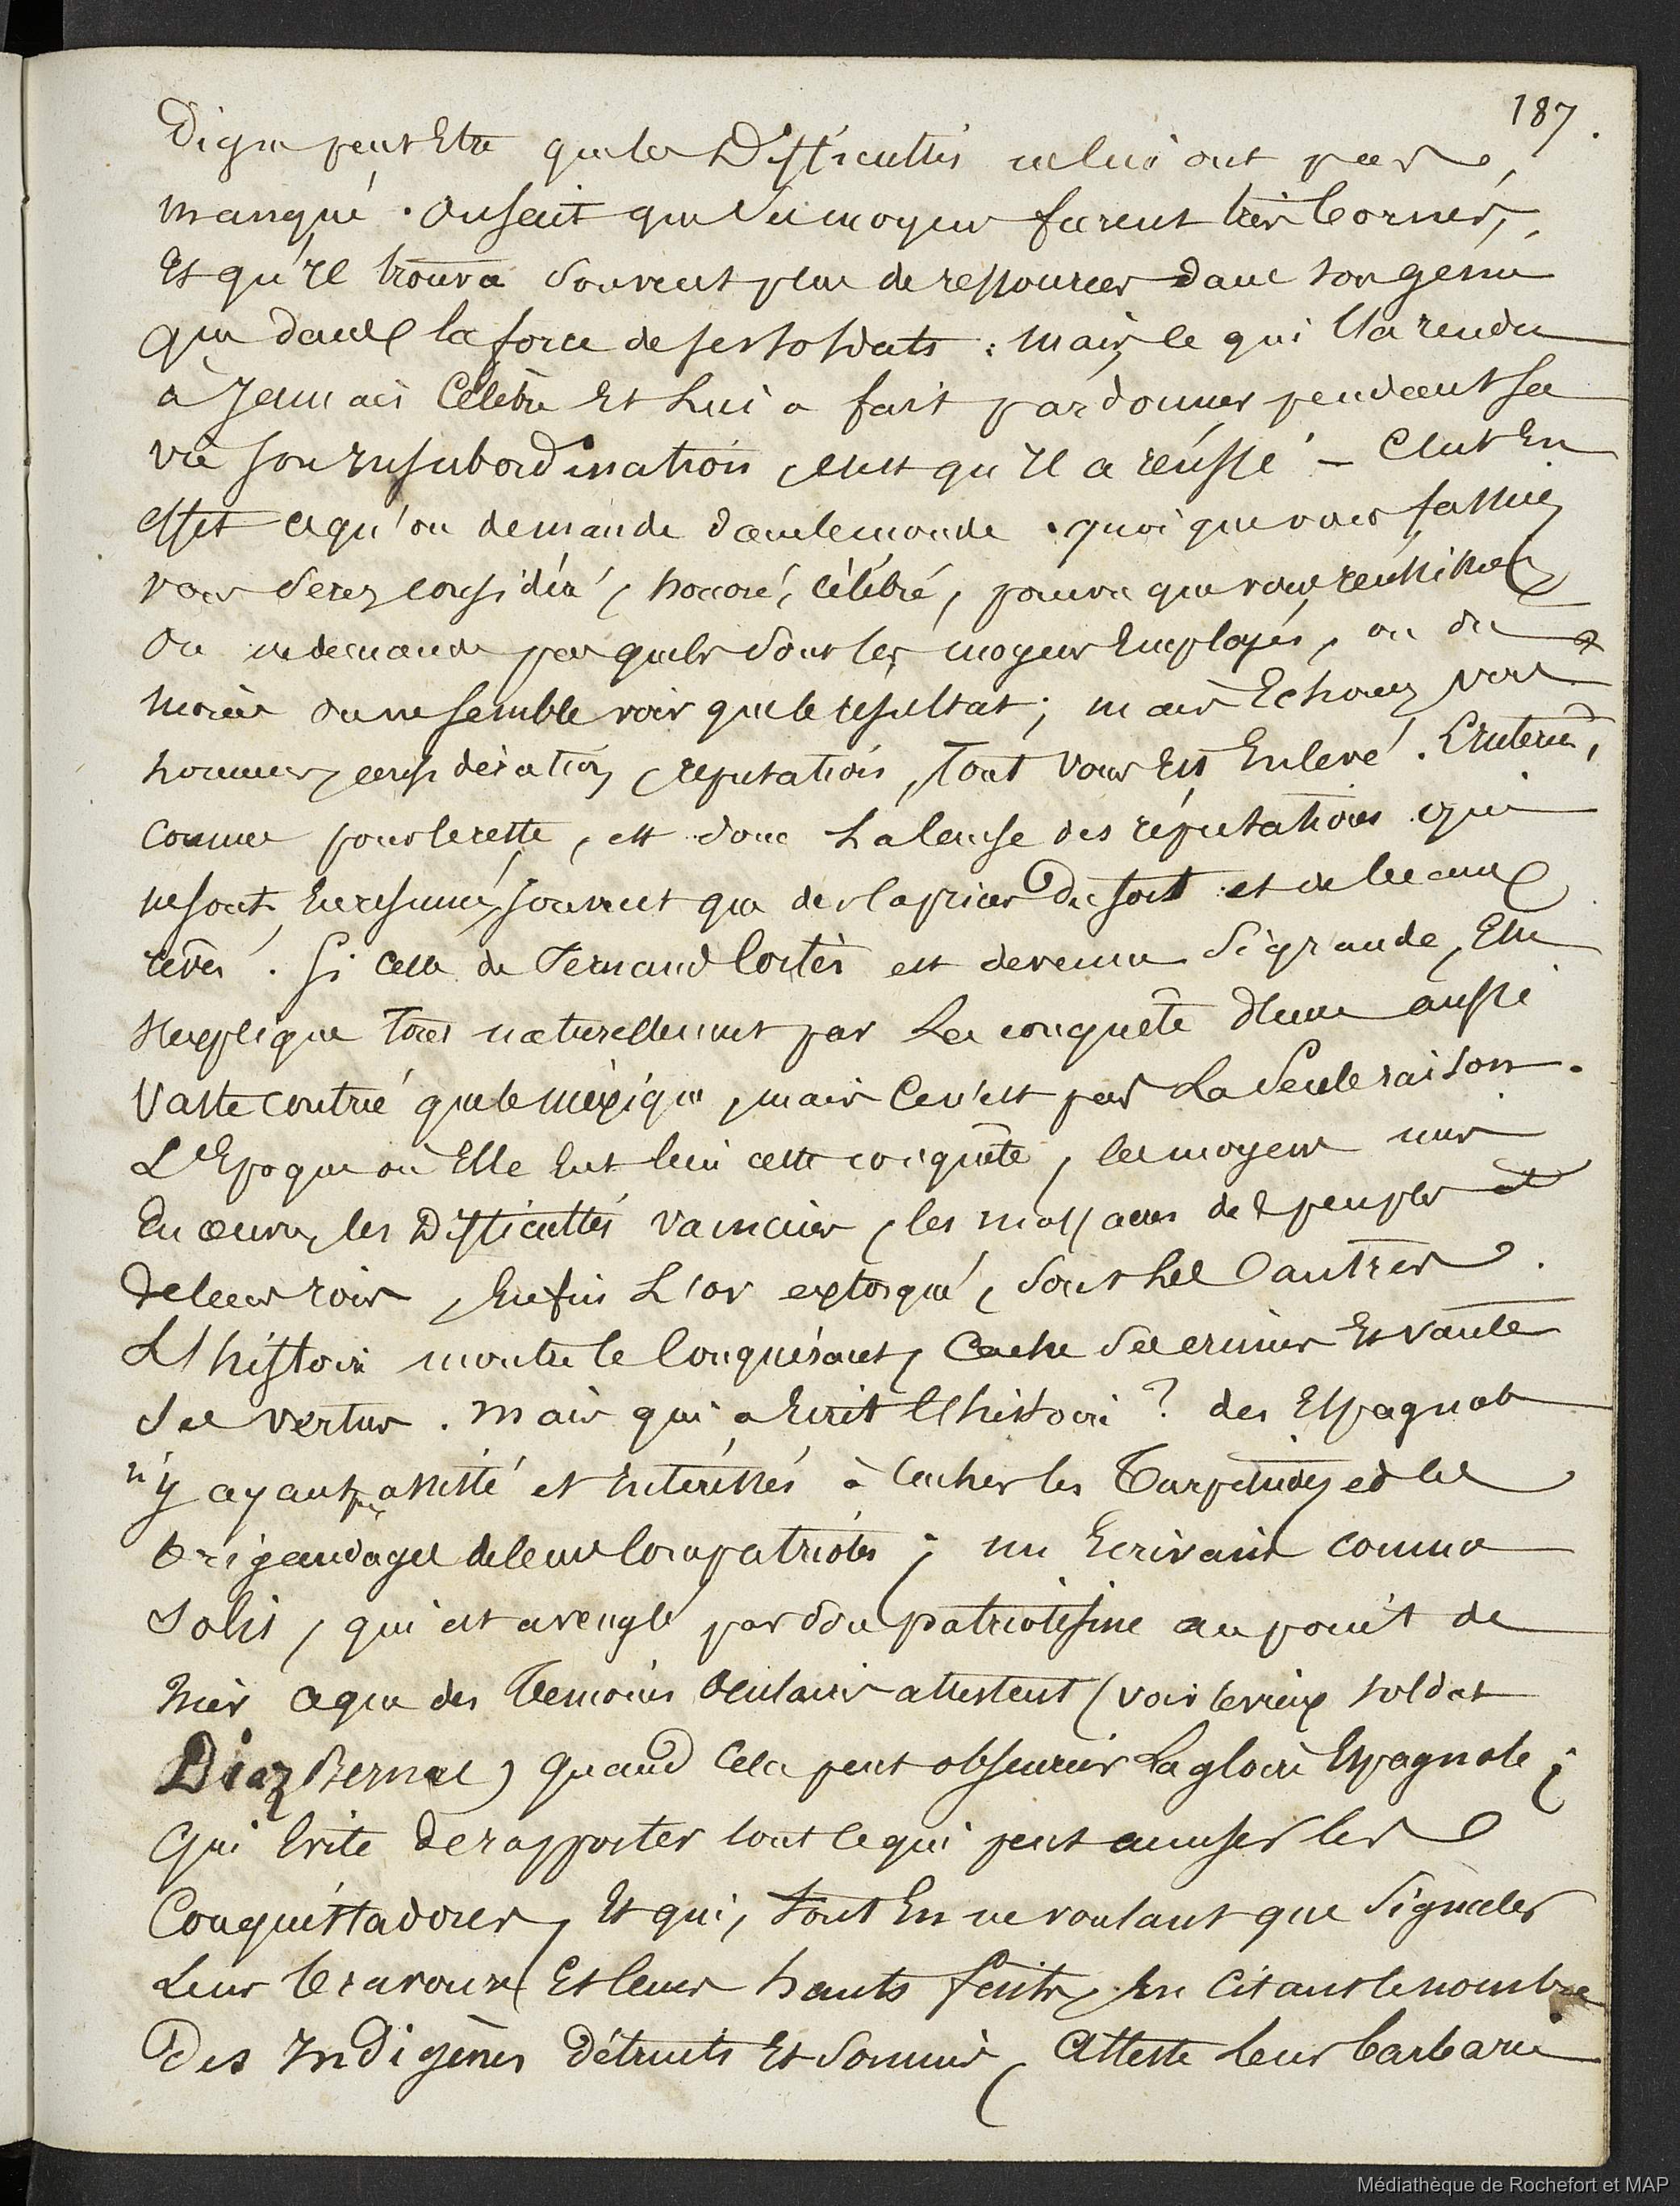 187.
Digne peut Etre que les Difficultés ne lui ont pas
manqué. On sait que Ses moyens furent très bornés,
Et qu'Il trouva Souvent plus de ressources dans son genie
que dans la force de ses soldats : mais ce qui l'a rendu
à Jamais Célèbre Et Lui a fait pardonner pendant sa
vie son Insubordination, c'est qu'Il a réussi – C'est En
effet ce qu'on demande dans le monde. quoi que vous fassiez
vous Serez considéré, honoré, célébré, pourvu que vous réussissiez
On ne demande pas quels Sont les moyens Employés, ou du
moins on ne semble voir que le resultat ; mais Echouez vous
honneurs, considération, reputation, Tout vous Est Enlevé.
comme pour le reste, est donc La cause des réputations qui
ne sont, En resumé, souvent que des caprices Du sort et de beaux
rêves. Si celle de Fernand Cortès est devenue Si grande, Elle
s'Explique Très naturellement par La conquête d'une aussi
Vaste contrée que le Mexique, mais Ce n'est pas La Seule raison.
L'Epoque où Elle Eut lieu cette conquête, les moyens mis
En œuvre, les Difficultés vaincues, les massacres de peuples et
de leurs rois, Enfin L'or extorqué, Sont les autres.
L'histoire montre le Conquérant, Cache Ses crimes Et vante
Ses vertus. Mais qui a Ecrit l'histoire ? des Espagnols
n'y ayant pas assisté et Intéressés à Cacher les Turpitudes et les
brigandages de leurs Compatriotes ; un Ecrivain comme
Solis, qui est aveuglé par Son patriotisme au point de
nier ce que des Temoins Oculaires attestent (voir le vieux soldat
Diaz Bernal) quand Cela peut obscurcir La gloire Espagnole ;
Qui Evite de rapporter tout ce qui peut accuser les
Conquistadores, Et qui, tout En ne voulant que Signaler
Leur bravoure Et leurs hauts faits, En Citant le nombre
Des Indigènes Détruits Et Soumis, Atteste leur barbarie
Médiathèque de Rochefort et MAP